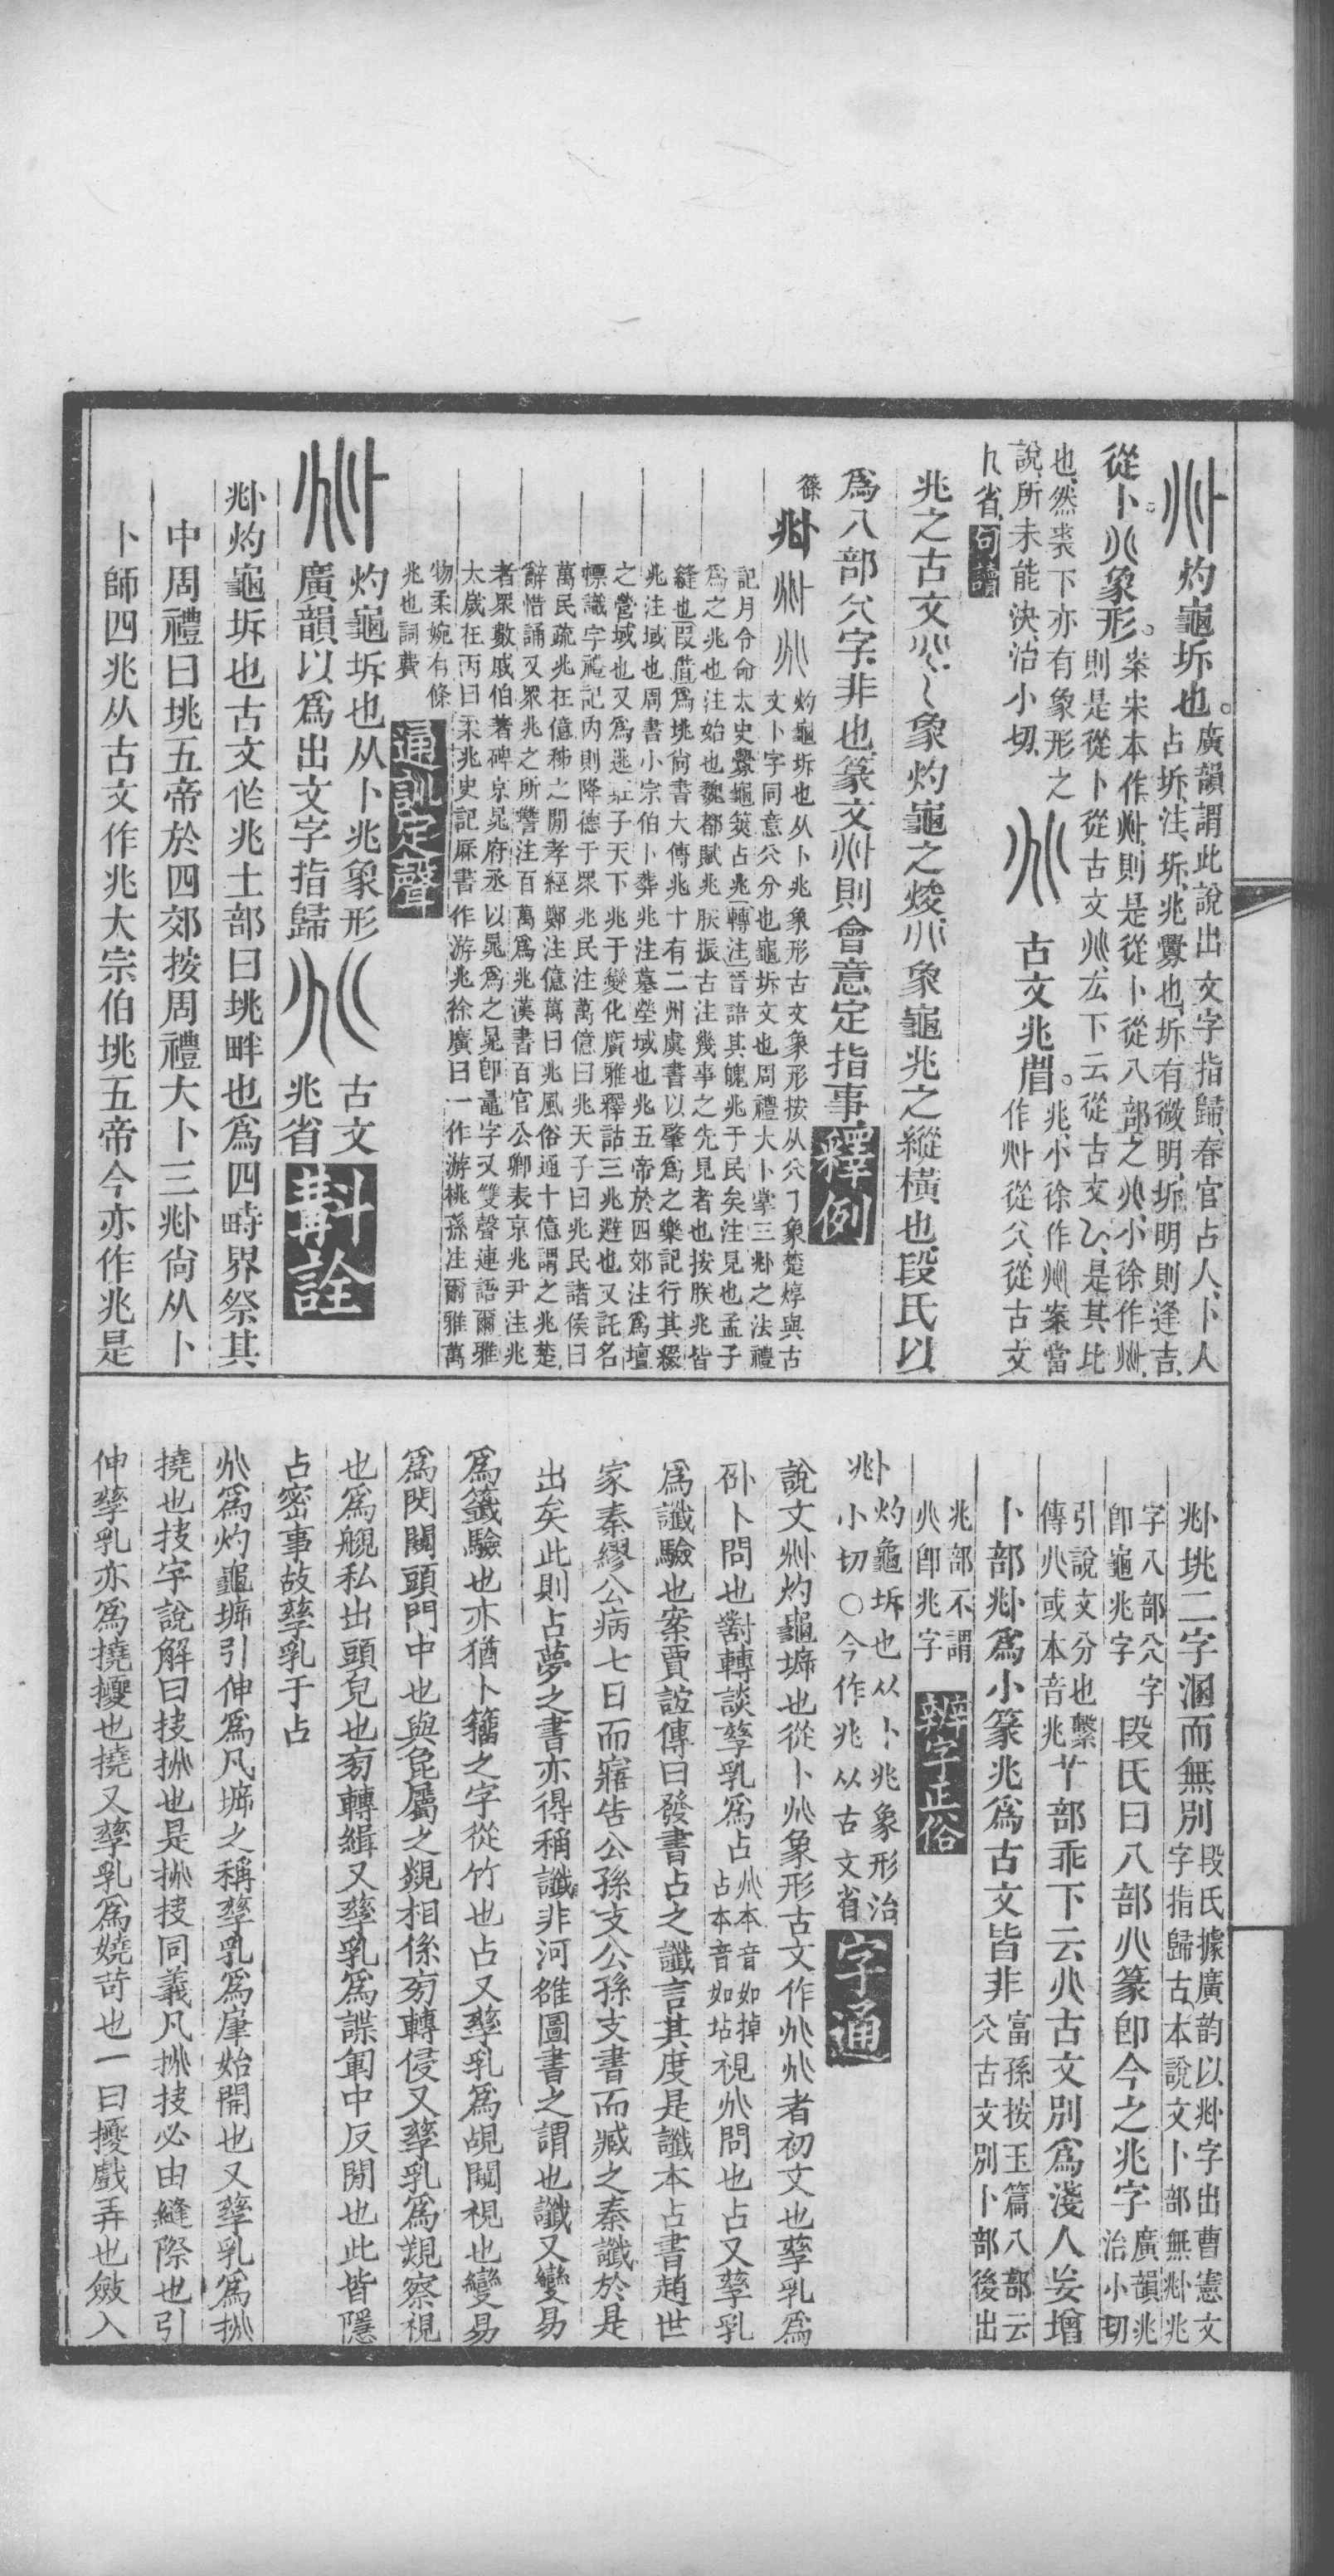 灼龜坼也。廣韻謂此說出文字指歸春官占人卜人
占坼注坼兆舋也坼有微明坼明則逢吉
從卜。兆象形。案宋本作𠧞則是從卜從八部之兆小徐作𠧞
則是從卜從古文兆厷下云從古文是其比
也然裘下亦有象形之
說所未能決治小切 古文兆省。兆小徐作𠧞案當
作𠧞從從古文
省句讀
兆之古文象灼龜之焌象龜兆之縱橫也段氏以
爲八部字非也篆文𠧞則會意定指事釋例
篠𠧞
灼龜坼也从卜兆象形古文象形按从象楚焞與古
文卜字同意分也龜坼文也周禮大卜掌三兆之法禮
記月令命太史釁龜筴占兆轉注晉語其魄兆于民矣注見也孟子
爲之兆也注始也魏都賦兆朕振古注幾事之先見者也按朕兆皆
縫也叚借爲垗尙書大傳兆十有二州虞書以肇爲之樂記行其綴
兆注域也周書小宗伯卜葬兆注墓塋域也兆五帝於四郊注爲壇
之營域也又爲逃莊子天下兆于變化廣雅釋詁三兆避也又託名
幖識字禮記內則降德于眾兆民注萬億曰兆天子曰兆民諸侯曰
萬民疏兆在億秭之閒孝經鄭注億萬曰兆風俗通十億謂之兆楚
辭惜誦又眾兆之所讐注百萬爲兆漢書百官公卿表京兆尹注兆
者眾數戚伯著碑京晁府丞以晁爲之晁卽鼂字又雙聲連語爾雅
太歲在丙曰柔兆史記厤書作游兆徐廣曰一作游桃孫注爾雅萬
物柔婉有條
兆也詞費 通訓定聲
灼龜坼也从卜兆象形
廣韻以爲出文字指歸 古文
兆省 斠詮
𠧞灼龜坼也古文作兆土部曰垗畔也爲四畤界祭其
中周禮曰垗五帝於四郊按周禮大卜三𠧞尙从卜
卜師四兆从古文作兆大宗伯垗五帝今亦作兆是
𠧞垗二字溷而無別段氏據廣韵以𠧞字出曹憲文
字指歸古本說文卜部無𠧞兆
字八部字
卽龜兆字 段氏曰八部兆篆卽今之兆字廣韻兆
治小切
引說文分也繫
傳兆或本音兆 𠁥部乖下云兆古文別爲淺人妄增
卜部𠧞爲小篆兆爲古文皆非富孫按玉篇八部云
古文別卜部後出
兆部不謂
兆卽兆字 辨字正俗
𠧞灼龜坼也从卜兆象形治
小切○今作兆从古文省 字通
說文𠧞灼龜㙤也從卜兆象形古文作兆兆者初文也孳乳爲
卟卜問也對轉談孳乳爲占兆本音如掉
占本音如坫視兆問也占又孳乳
爲讖驗也案賈誼傳曰發書占之讖言其度是讖本占書趙世
家秦繆公病七日而寤告公孫支公孫支書而臧之秦讖於是
出矣此則占夢之書亦得稱讖非河雒圖書之謂也讖又變易
爲籤驗也亦猶卜籀之字從竹也占又孳乳爲覘闚視也變易
爲閃闚頭門中也與㲋屬之覾相係㫄轉侵又孳乳爲覾察視
也爲覹私出頭皃也㫄轉緝又孳乳爲諜軍中反閒也此皆隱
占密事故孳乳于占
兆爲灼龜㙤引伸爲凡㙤之稱孳乳爲肁始開也又孳乳爲挑
撓也技字說解曰技挑也是挑技同義凡挑技必由縫際也引
伸孳乳亦爲撓擾也撓又孳乳爲嬈苛也一曰擾戲弄也斂入